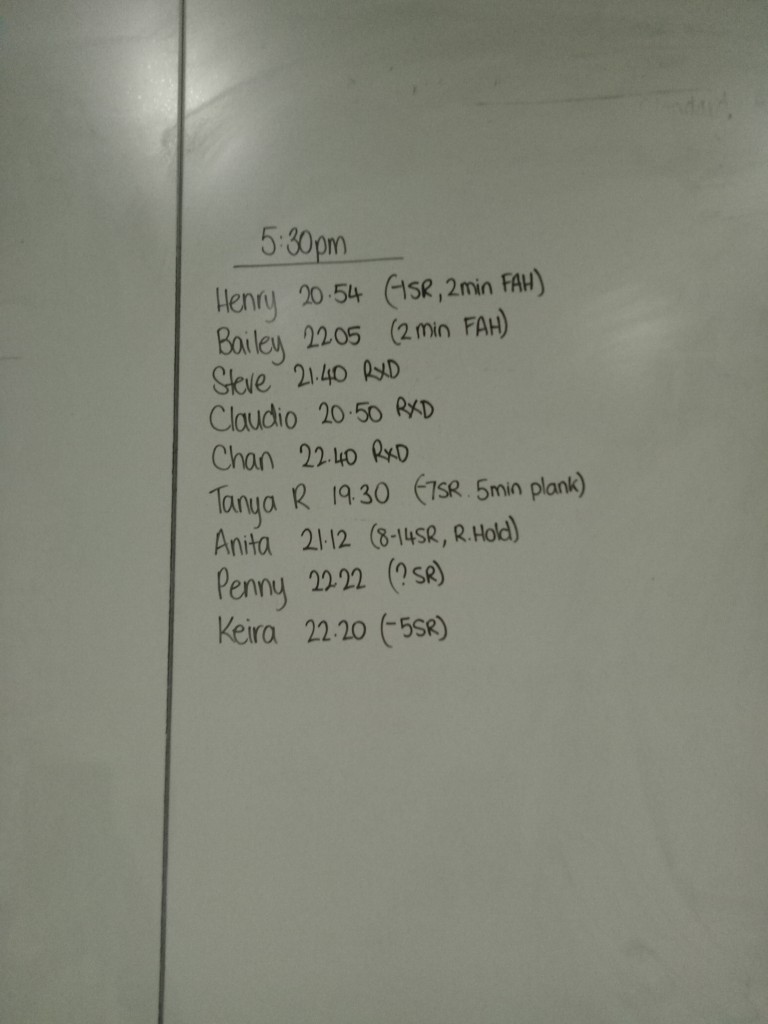 5:30pm
Henry 20.54 (-1SR, 2min FAH)
Bailey 2205 (2min FAH)
Steve 21.40 RXD
Claudio 20.50 RXD
Chan 22.40 RXD
Tanya R 19.30 (-7SR. 5min plank)
Anita 21.12 (8-14SR, R.Hold)
Penny 2222 (?SR)
Keira 22.20 (-5SR)